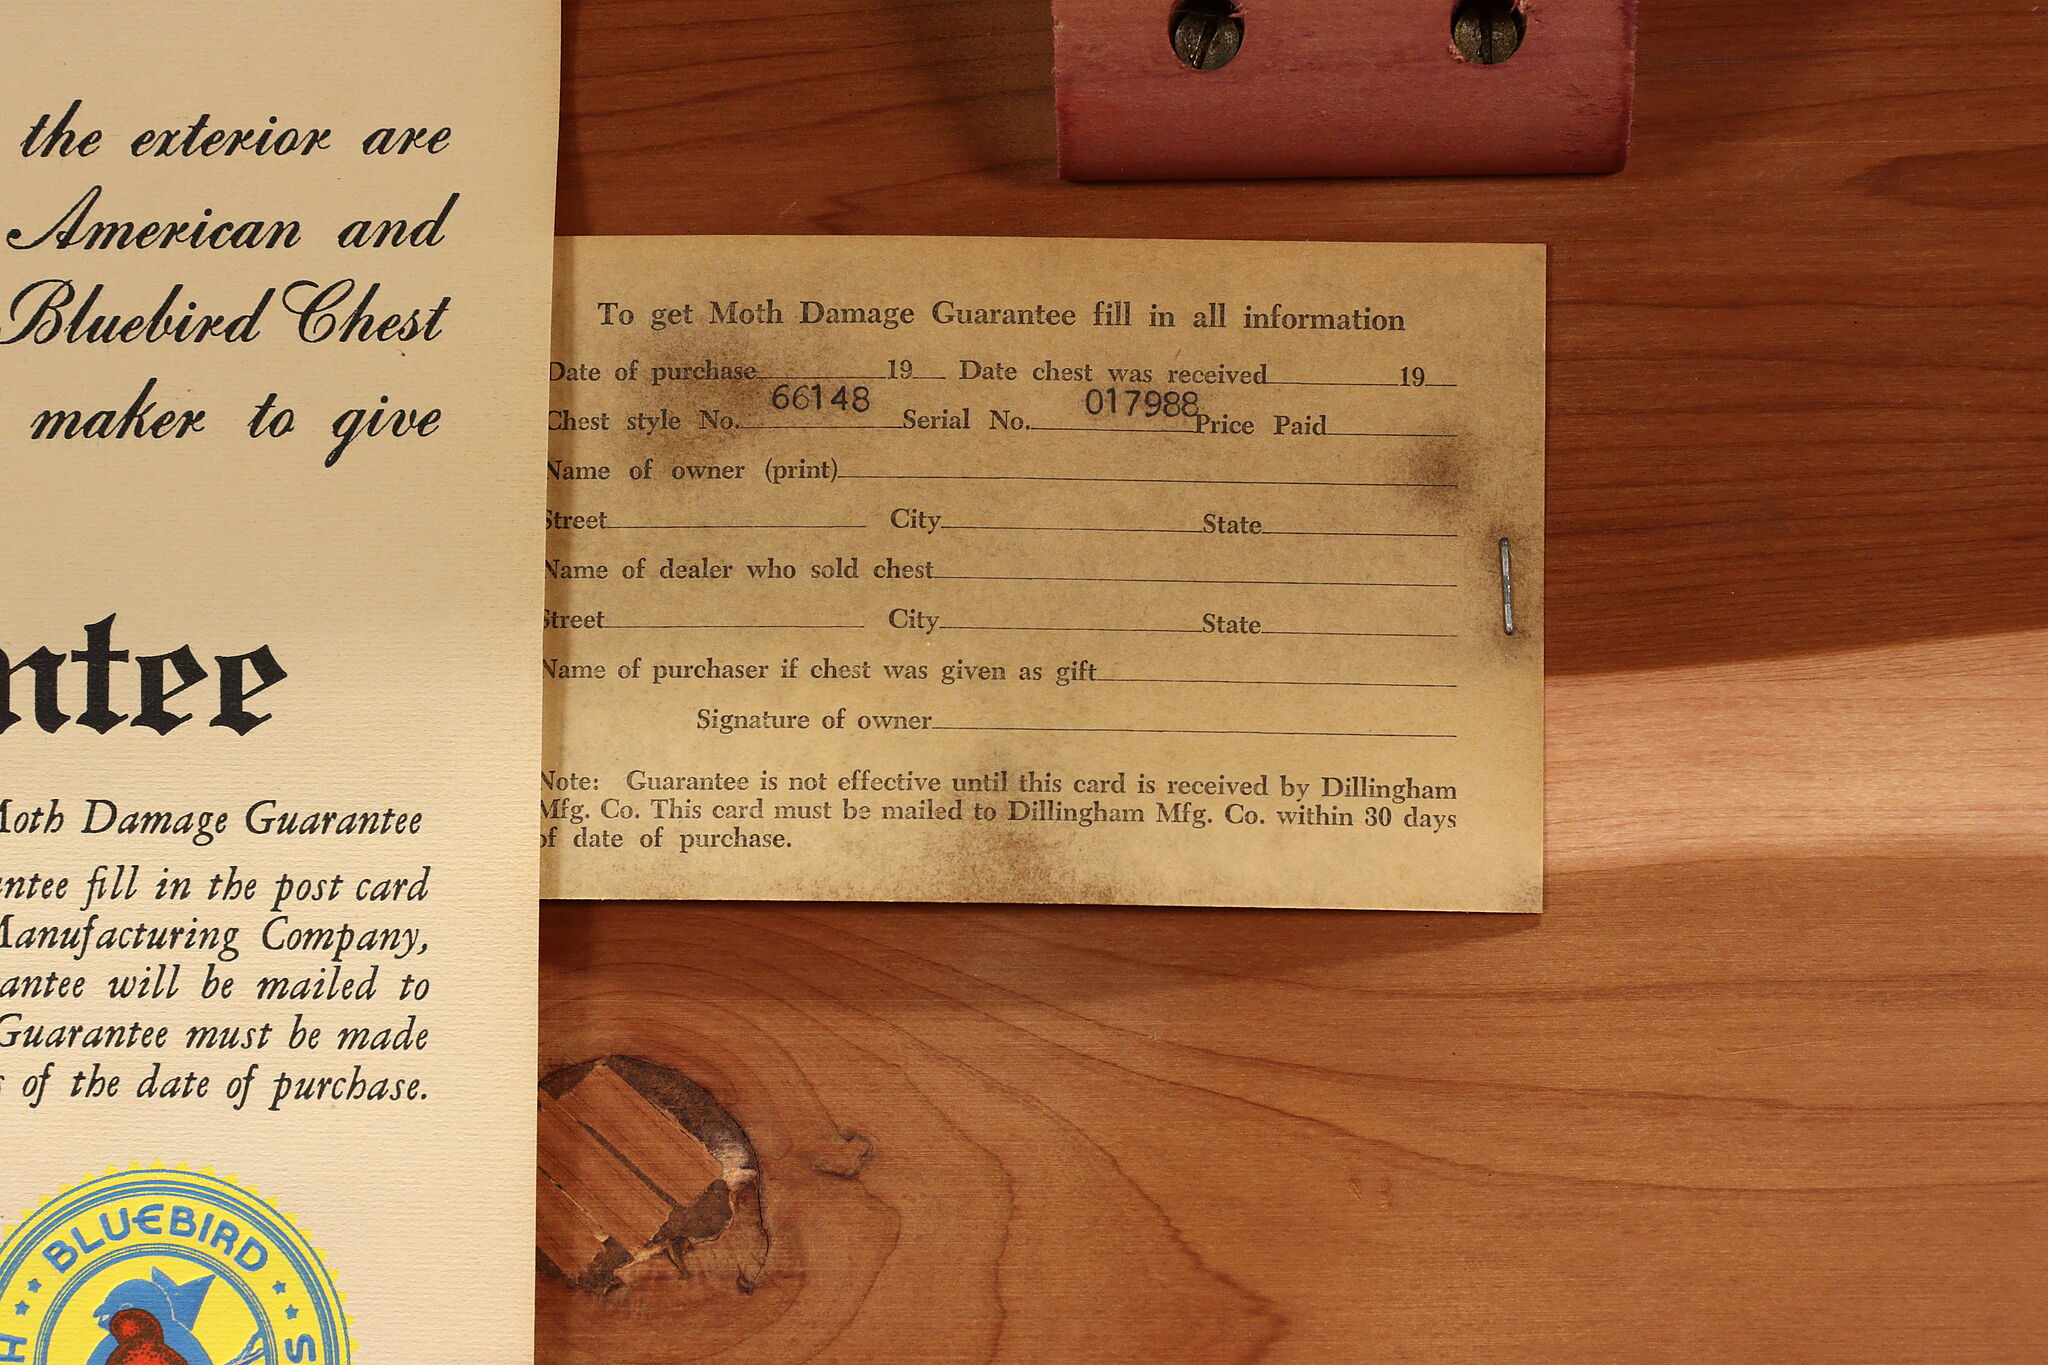 the exterior are
American and
Bluebird Chest
maker to give
ntee
Moth Damage Guarantee
antee fill in the post card
Manufacturing Company,
antee will be mailed to
Guarantee must be made
s of the date of purchase.
BLUEBIRD
To get Moth Damage Guarantee fill in all information
Date of purchase 19 Date chest was received 19
66148 017988
Chest style No. Serial No. Price Paid
Name of owner (print)
Street City State
Name of dealer who sold chest
Street City State
Name of purchaser if chest was given as gift
Signature of owner
Note: Guarantee is not effective until this card is received by Dillingham
Mfg. Co. This card must be mailed to Dillingham Mfg. Co. within 30 days
of date of purchase.